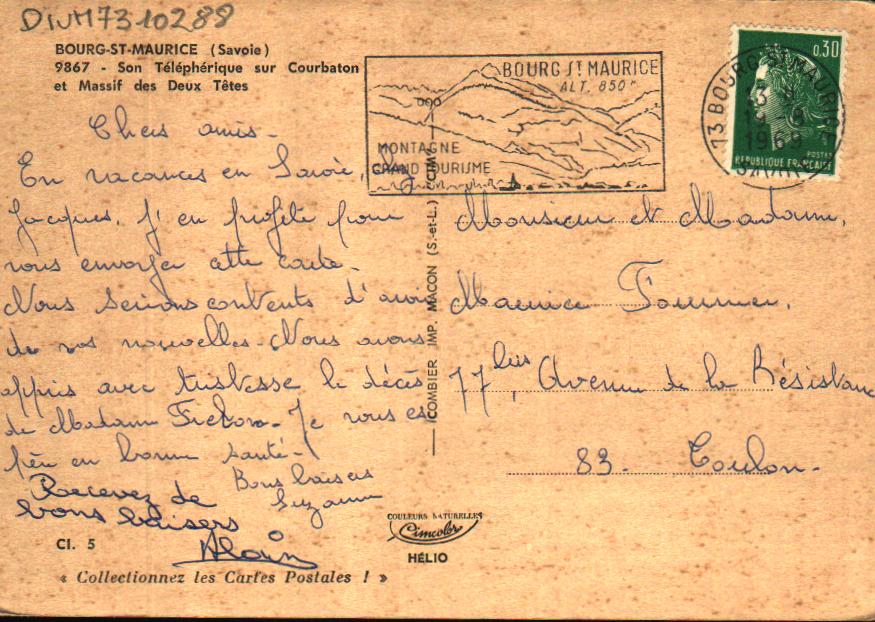 DIVM7310288
BOURG-ST-MAURICE (Savoie)
9867 - Son Téléphérique sur Courbaton
et Massif des Deux Têtes
Chers amis -
En vacances en Savoie, chez
Jacques, j'en profite pour
vous envoyer cette carte.
Nous serions contents d'avoir
de vos nouvelles. Nous avons
appris avec tristesse le décès
de Madame - Je vous es-
père en bonne santé -
Bons baisers
Suzanne
Recevez de
bons baisers
Alain
Cl. 5
« Collectionnez les Cartes Postales ! »
BOURG ST MAURICE
ALT. 850m
MONTAGNE
GRAND TOURISME
13 BOURG-ST-MAURICE
1969
SAVOIE
0,30
POSTES
REPUBLIQUE FRANÇAISE
COMBIER IMP. MACON (S.-et-L.) "CIM"
Monsieur et Madame,
Maurice Fournier,
77 bis, Avenue de la Résistance
83. Toulon.
COULEURS NATURELLES
Cimcolor
HÉLIO